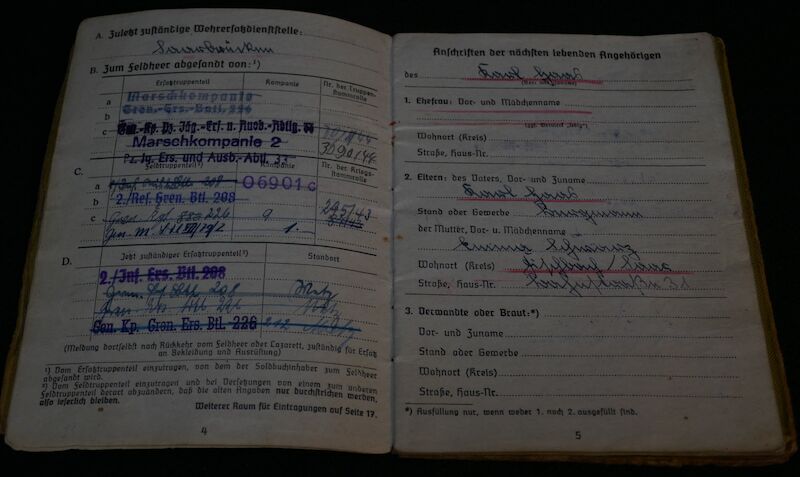 A. Zuletzt zuständige Wehrersatzdienststelle:
Saarbrücken
B. Zum Feldheer abgesandt von:¹)
Ersatztruppenteil Kompanie Nr. der Truppenstammrolle
a Marschkompanie
b Gren.-Ers.-Batl. 226
c Gen.-Kp. Pz. Jäg.-Ers. u. Ausb.-Abtlg.
Marschkompanie 2
Pz. Jg. Ers. und Ausb.-Abtl. 33
C.
Feldtruppenteil²) Kompanie Nr. der Kriegsstammrolle
a 208 06901 c
b 2./Res. Gren. Btl. 208
295/43
c 226 9
1.
D.
Jetzt zuständiger Ersatztruppenteil²) Standort
2./Inf. Ers. Btl. 208
208 Metz
226
Gen. Kp. Gren. Ers. Btl. 226
(Meldung dortselbst nach Rückkehr vom Feldheer oder Lazarett, zuständig für Ersatz
an Bekleidung und Ausrüstung)
¹) Vom Ersatztruppenteil einzutragen, von dem der Soldbuchinhaber zum Feldheer
abgesandt wird.
²) Vom Feldtruppenteil einzutragen und bei Versetzungen von einem zum anderen
Feldtruppenteil derart abzuändern, daß die alten Angaben nur durchstrichen werden,
also leserlich bleiben.
Weiterer Raum für Eintragungen auf Seite 17.
4
Anschriften der nächsten lebenden Angehörigen
des Karl Haas
(Vor- und Zuname)
1. Ehefrau: Vor- und Mädchenname
(ggf. Vermerk „ledig")
Wohnort (Kreis)
Straße, Haus-Nr.
2. Eltern: des Vaters, Vor- und Zuname
Karl Haas
Stand oder Gewerbe
der Mutter, Vor- u. Mädchenname
Emma
Wohnort (Kreis) Saar
Straße, Haus-Nr. 31
3. Verwandte oder Braut:*)
Vor- und Zuname
Stand oder Gewerbe
Wohnort (Kreis)
Straße, Haus-Nr.
*) Ausfüllung nur, wenn weder 1. noch 2. ausgefüllt sind.
5